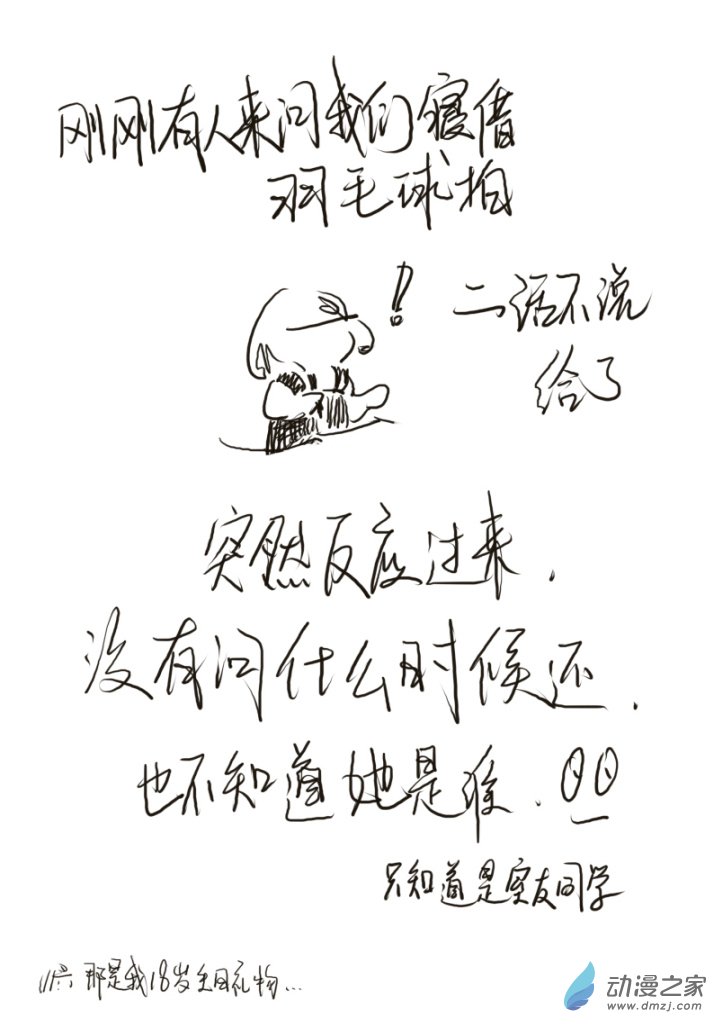 刚刚有人来问我们寝借
羽毛球拍
!
二话不说
给了
突然反应过来.
没有问什么时候还.
也不知道她是谁.
只知道是室友同学
那是我18岁生日礼物...
动漫之家
www.dmzj.com